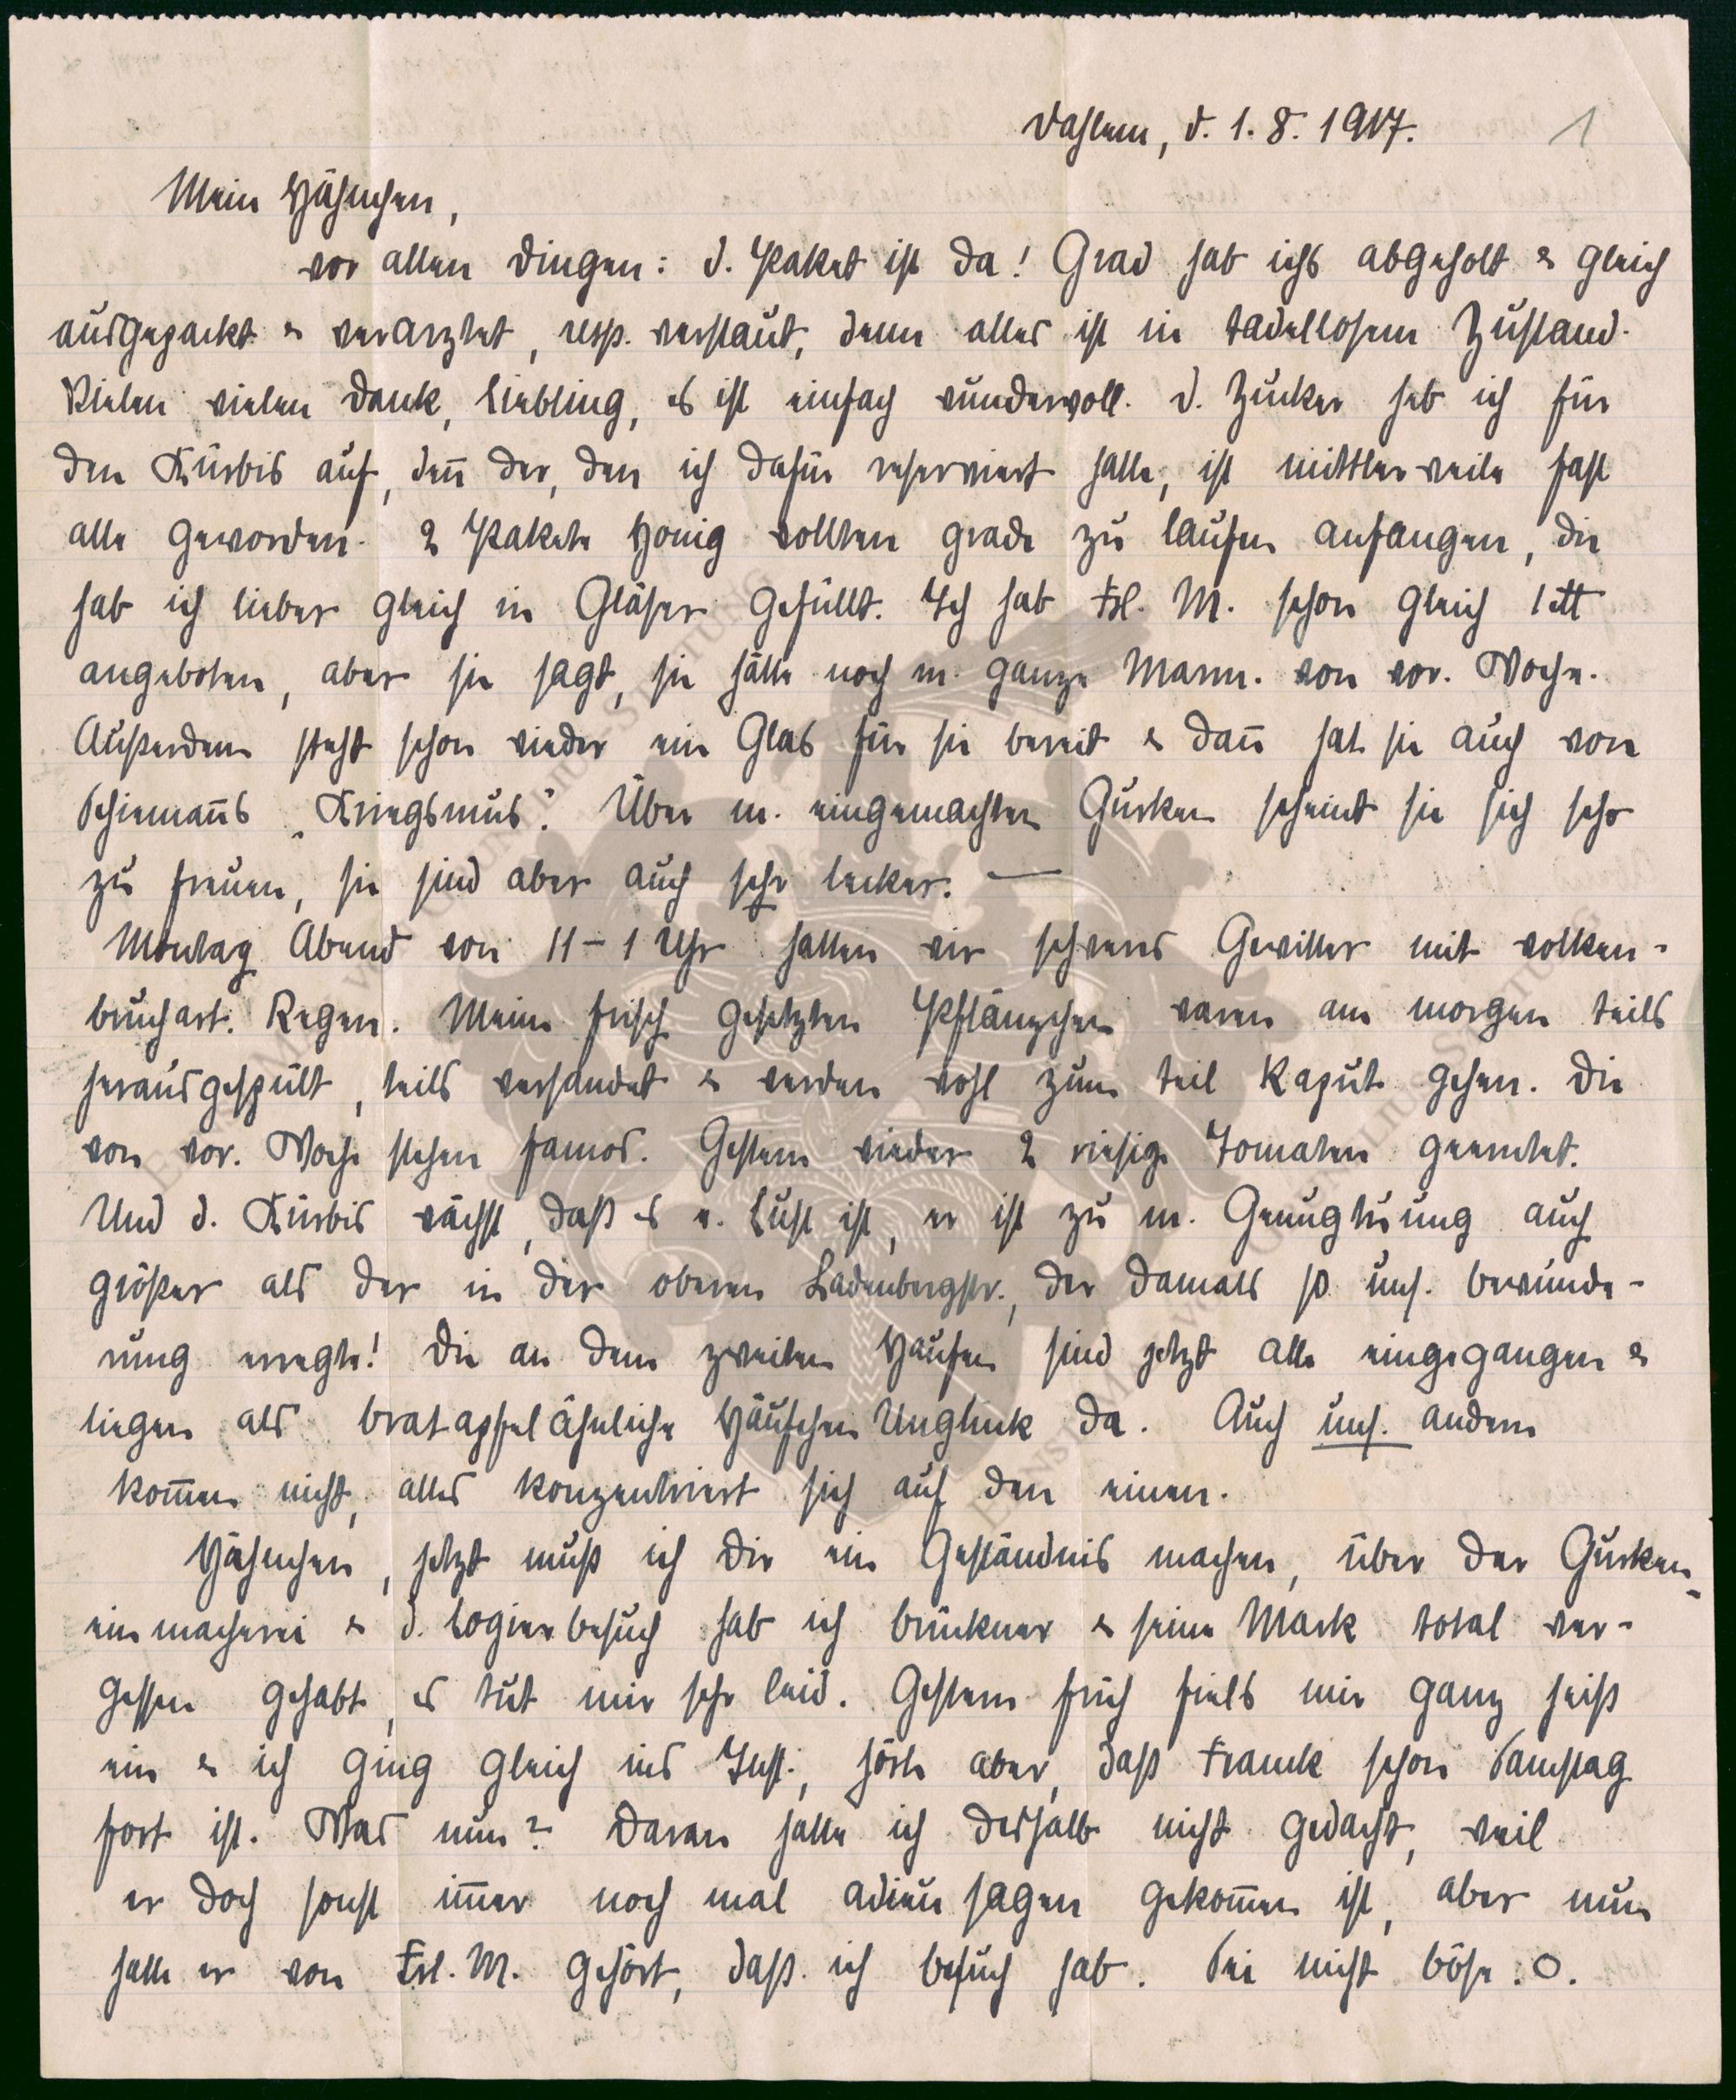 Dahlem, d. 1. 8. 1917. 1
Mein Hähnchen,
vor allen Dingen: d. Paket ist da! Grad hab ichs abgeholt & gleich
ausgepackt & verarztet, resp. verstaut, denn alles ist in tadellosem Zustand.
Vielen vielen Dank, Liebling, es ist einfach wundervoll. D. Zucker heb ich für
den Kürbis auf, deñ der, den ich dafür reserviert hatte, ist mittlerweile fast
alle geworden. 2 Pakete Honig wollten grade zu laufen anfangen, die
hab ich lieber gleich in Gläser gefüllt. Ich hab Frl. M. schon gleich 1 ℔
angeboten, aber sie sagt, sie hätte noch m. ganze Marm. von vor. Woche.
Außerdem steht schon wieder ein Glas für sie bereit & dañ hat sie auch von
Schiemañs „Kriegsmus“. Über m. eingemachten Gurken scheint sie sich sehr
zu freuen, sie sind aber auch sehr lecker. —
Montag Abend von 11 – 1 Uhr hatten wir schweres Gewitter mit wolken-
bruchart. Regen. Meine frisch gesetzten Pflänzchen waren am morgen teils
herausgespült, teils versandet & werden wohl zum teil kaput gehen. Die
von vor. Woche stehen famos. Gestern wieder 2 riesige Tomaten geerntet.
Und d. Kürbis wächst, daß es e. Lust ist, er ist zu m. Genugtuung auch
größer als der in der oberen Ladenbergstr., der damals so uns. bewunde-
rung erregte! Die an dem zweiten Haufen sind jetzt alle eingegangen &
liegen als bratapfelähnliche Häufchen Unglück da. Auch uns. andern
kom̃en nicht, alles konzentriert sich auf den einen.
Hähnchen, jetzt muß ich Dir ein Geständnis machen, über der Gurken-
einmacherei & d. Logierbesuch hab ich Brückner & seine Mark total ver-
gessen gehabt, es tut mir sehr leid. Gestern früh fiels mir ganz heiß
ein & ich ging gleich ins Inst., hörte aber, daß Franck schon Samstag
fort ist. Was nun? Daran hatte ich deshalb nicht gedacht, weil
er doch sonst im̃er noch mal adieu sagen gekom̃en ist, aber nun
hatte er von Frl. M. gehört, daß ich besuch hab. Sei nicht böse. O.